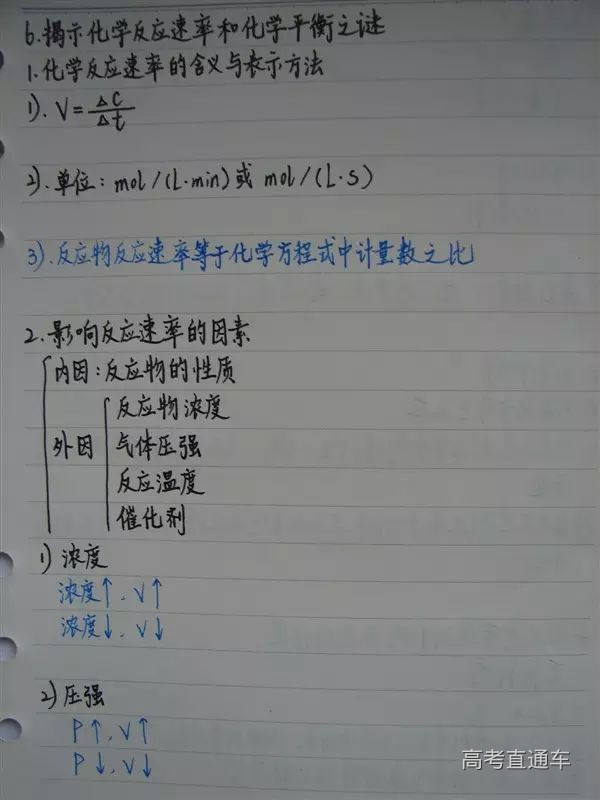 6.揭示化学反应速率和化学平衡之谜
1.化学反应速率的含义与表示方法
1). V=ΔC/Δt
2).单位:mol/(L·min)或 mol/(L·S)
3).反应物反应速率等于化学方程式中计量数之比
2.影响反应速率的因素
内因:反应物的性质
外因
反应物浓度
气体压强
反应温度
催化剂
1)浓度
浓度↑.V↑
浓度↓.V↓
2)压强
P↑.V↑
P↓.V↓
高考直通车